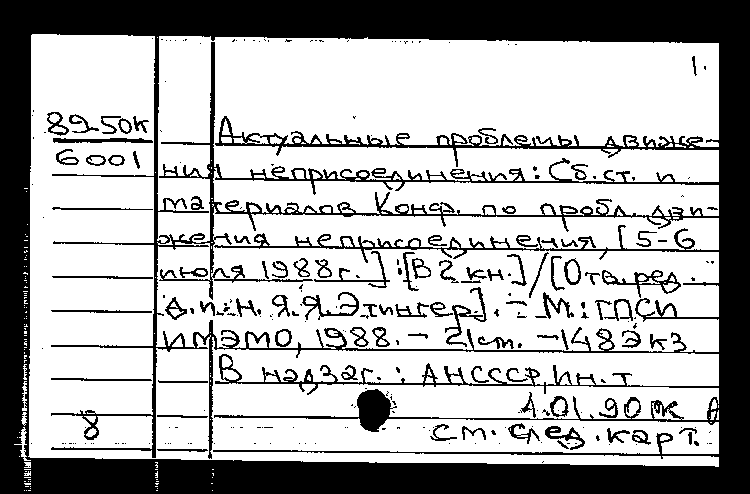 1.
89-50к
6001
Актуальные проблемы движе-
ния неприсоединения: Сб.ст. и
материалов Конф. по пробл. дви-
жения неприсоединения, [5-6
июля 1988г.]:[В 2 кн.]/[Отв.ред.
д.и.н. Я.Я.Этингер]. - М.: ГПСИ
ИМЭМО, 1988. - 21см. - 148 экз
В надзаг.: АН СССР, Ин-т
4.01.90 Ж
8
см. след. карт.